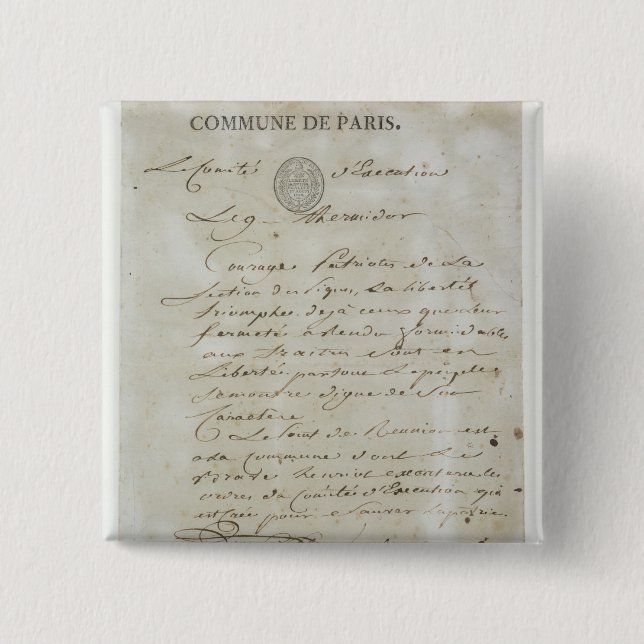 COMMUNE DE PARIS.
Le Comité d'Execution
Le 9 thermidor
Courage Patriotes de La
Section des Piques, La liberté
triomphe. dejà ceux que leur
fermeté a rendu formidables
aux traitres sont en
Liberté partout Le peuple
se montre digne de Son
Caractere
Le Point de Reunion est
a la Commune dont Le
brave henriot executera les
ordres du Comité d'Execution qui
est Créé pour Sauver La patrie.